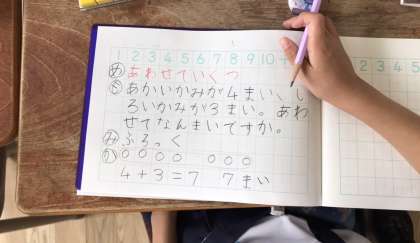 1 2 3 4 5 6 7 8 9 10
め あわせていくつ
も あかいかみが4まい、し
ろいかみが3まい。あわ
せてなんまいですか。
み ぶろっく
か ○○○○ ○○○
4+3=7 7まい
2 3 4 5